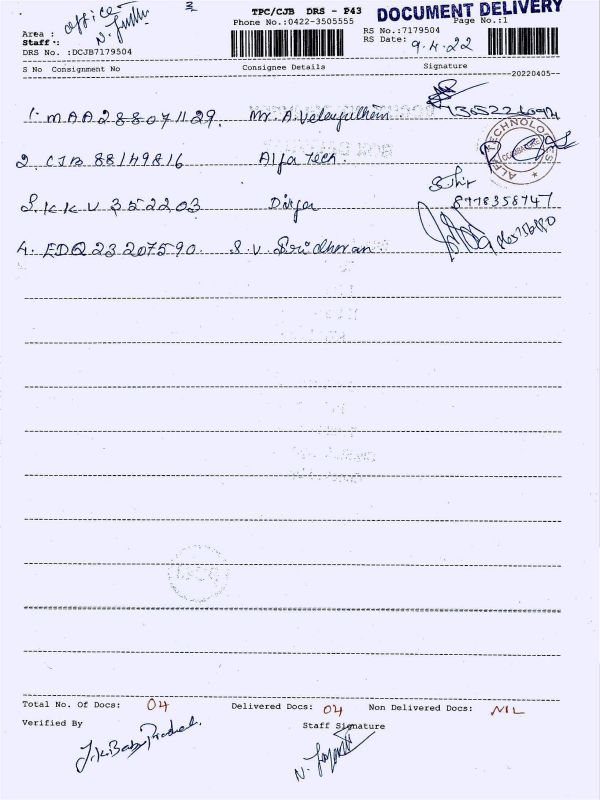 3 TPC/CJB DRS - P43 DOCUMENT DELIVERY
Phone No:0422-3505555 Page No.:1
Area : office
Staff : N.
RS No.:7179504
RS Date: 9.4.22
DRS No. :DCJB7179504
S No Consignment No Consignee Details Signature
20220405
1. MAA288071129. Mr. A. Velayutham
2. CJB 88149816 Alfa Tech.
ALFA TECHNOLOGIES
COIMBATORE
3. KKV 352203 Divya 8778358747
4. EDQ232207590. S.V. Sridharan
Total No. Of Docs: 04 Delivered Docs: 04 Non Delivered Docs: NIL
Verified By Staff Signature